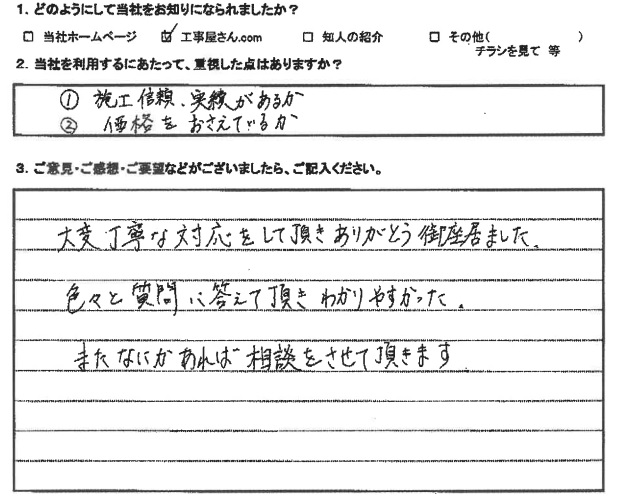 1. どのようにして当社をお知りになられましたか？
□ 当社ホームページ ☑ 工事屋さん.com □ 知人の紹介 □ その他( )
チラシを見て 等
2. 当社を利用するにあたって、重視した点はありますか？
① 施工信頼、実績があるか
② 価格をおさえているか
3. ご意見・ご感想・ご要望などがございましたら、ご記入ください。
大変丁寧な対応をして頂きありがとう御座居ました。
色々と質問に答えて頂きわかりやすかった。
またなにかあれば相談をさせて頂きます